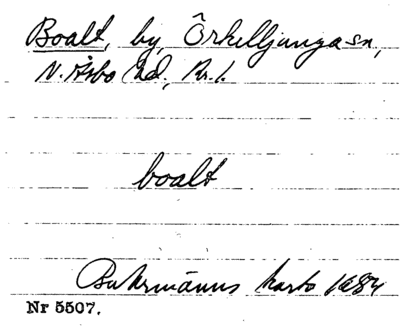 Boalt, by, Örkelljunga sn,
N. Åsbo hd., Kr. l.
boalt
Buhrmanns karta 1684
Nr 5507.